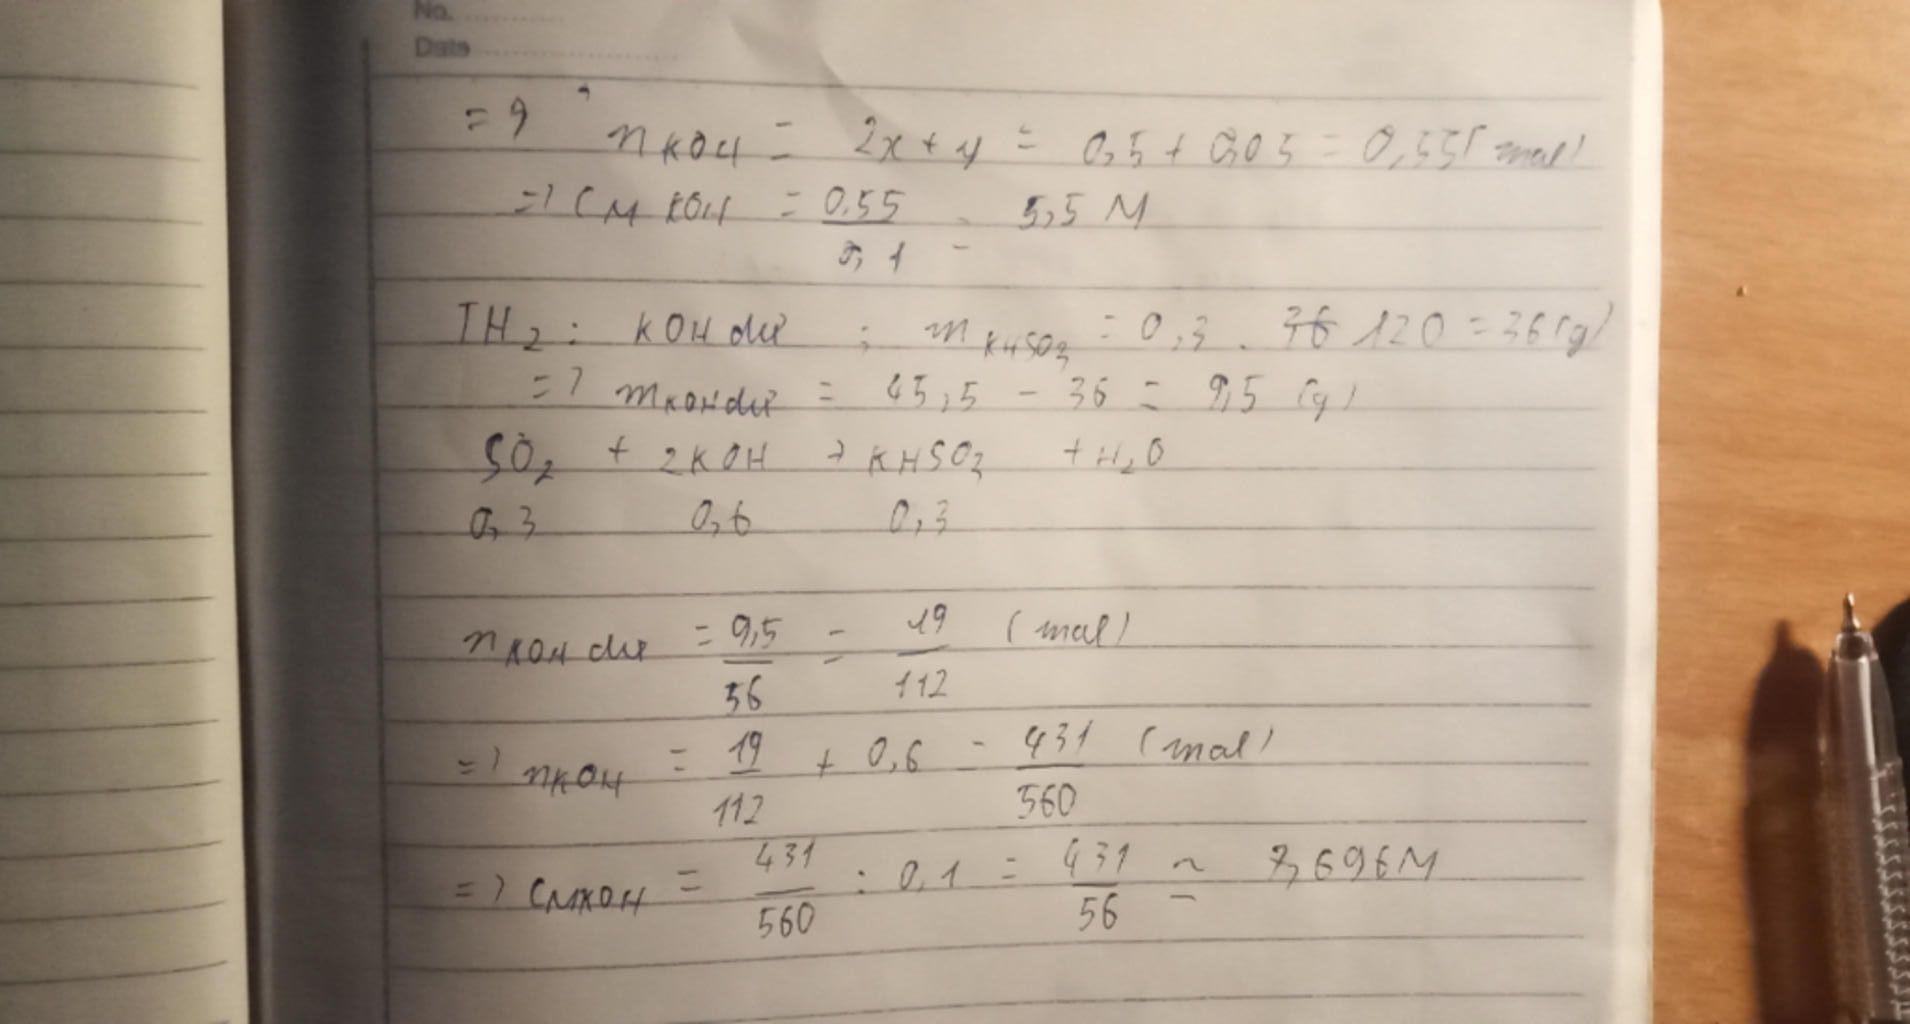 No.
Date
=> nKOH = 2x + y = 0,5 + 0,05 = 0,55 (mol)
=> CM KOH = 0,55 / 0,1 = 5,5 M
TH2: KOH dư ; mKHSO3 = 0,3 . 36 120 = 36 (g)
=> mKOH dư = 45,5 - 36 = 9,5 (g)
SO2 + 2KOH → KHSO3 + H2O
0,3 0,6 0,3
nKOH dư = 9,5 / 56 = 19 / 112 (mol)
=> nKOH = 19 / 112 + 0,6 = 431 / 560 (mol)
=> CMKOH = 431 / 560 : 0,1 = 431 / 56 ≈ 7,696M